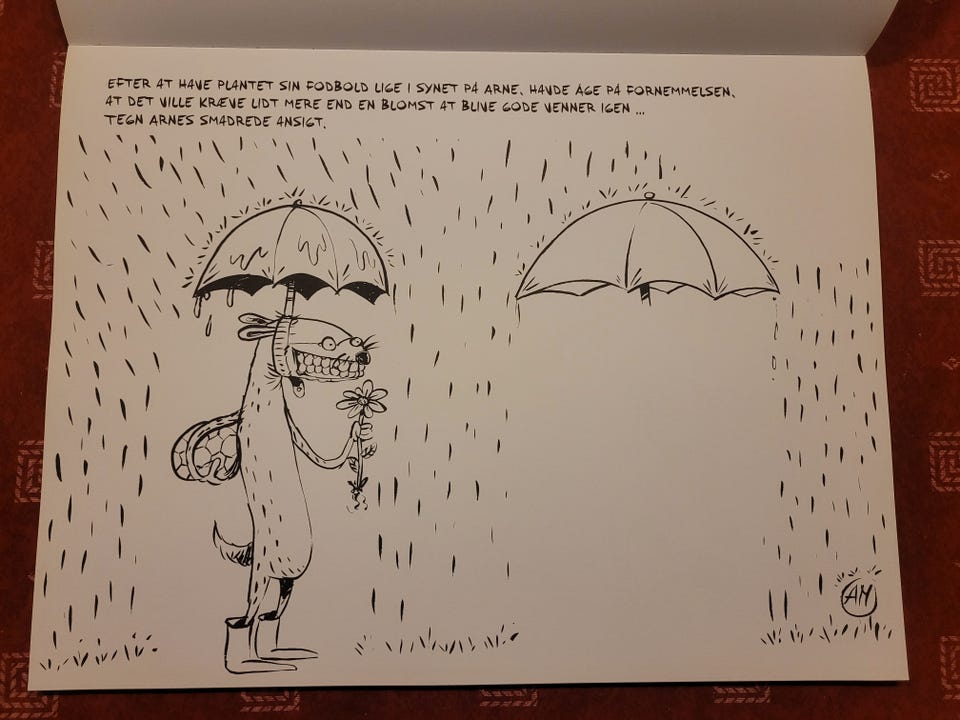 EFTER AT HAVE PLANTET SIN FODBOLD LIGE I SYNET PÅ ARNE, HAVDE ÅGE PÅ FORNEMMELSEN,
AT DET VILLE KRÆVE LIDT MERE END EN BLOMST AT BLIVE GODE VENNER IGEN ...
TEGN ARNES SMADREDE ANSIGT.
AM